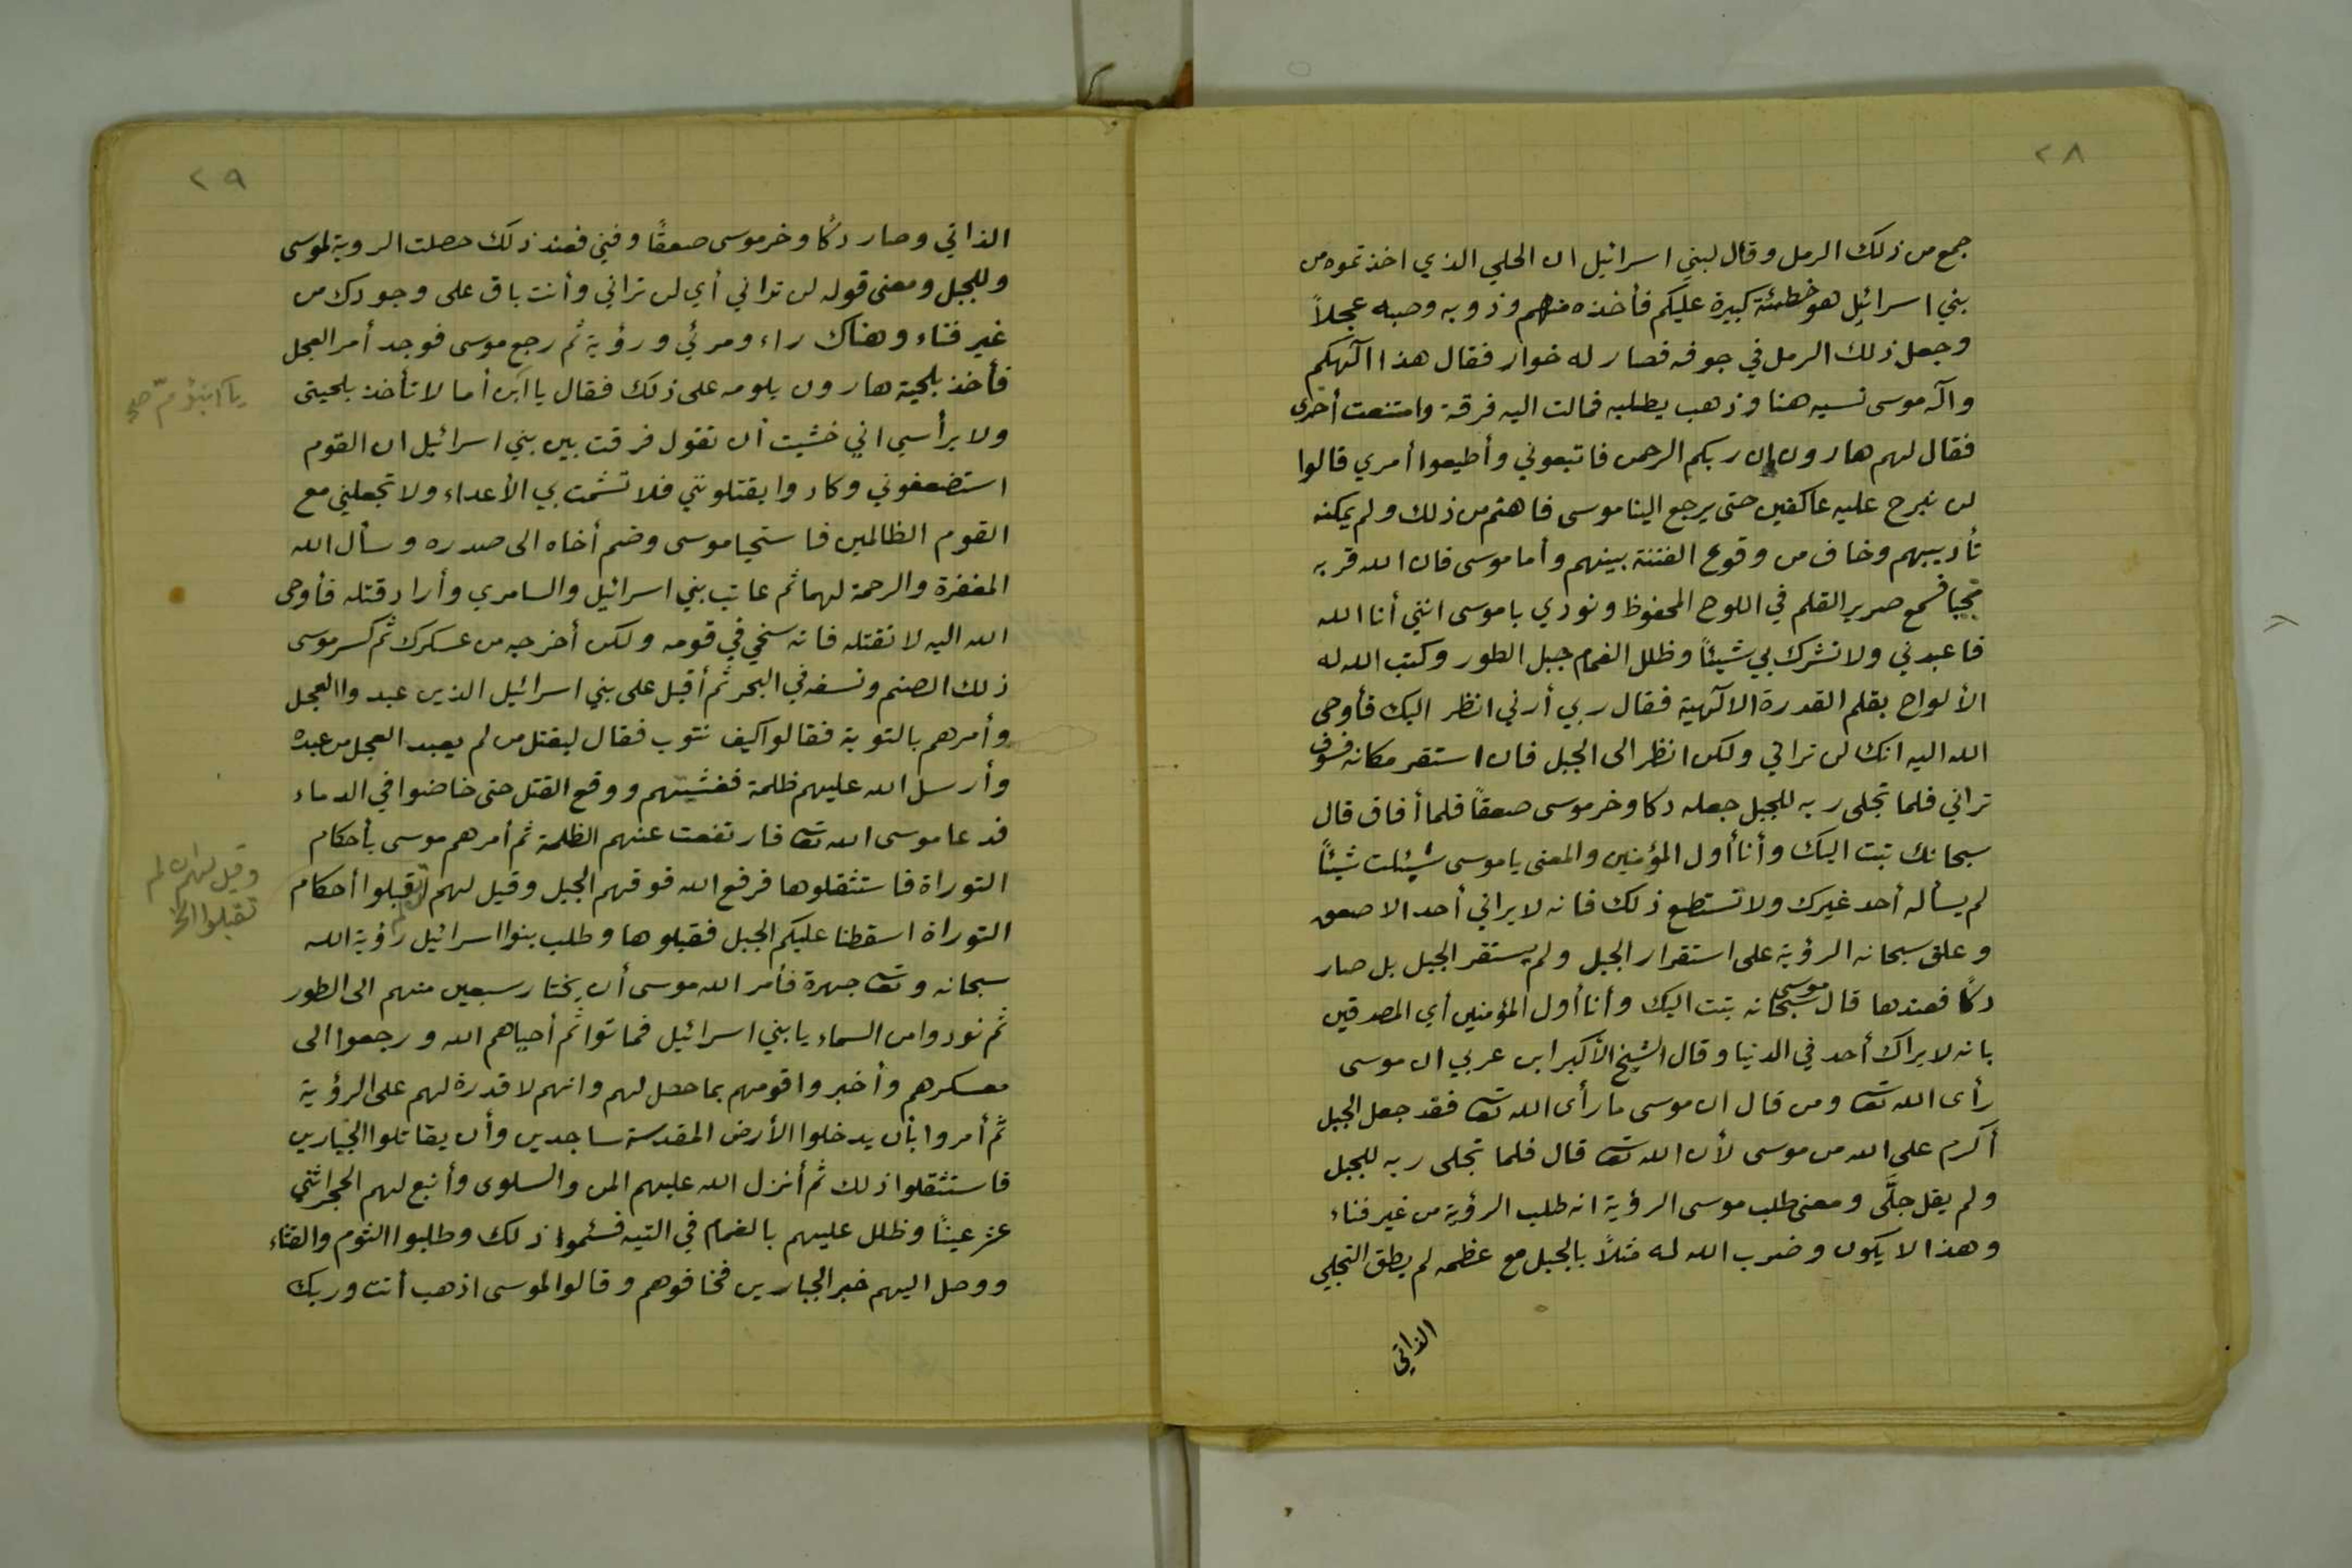 ٢٨
جمع من ذلك الرمل وقال لبني اسرائيل ان الحلي الذي اخذتموه من
بني اسرائيل هو خطئة كبيرة عليكم فأخذه منهم وذوبه وصبه عجلاً
وجعل ذلك الرمل في جوفه فصار له خوار فقال هذا آلهكم
وآله موسى نسيه هنا وذهب يطلبه فمالت اليه فرقة وامتنعت أخرى
فقال لهم هارون ان ربكم الرحمن فاتبعوني وأطيعوا أمري قالوا
لن نبرح عليه عاكفين حتى يرجع الينا موسى فاهتم من ذلك ولم يمكنه
تأديبهم وخاف من وقوع الفتنة بينهم وأما موسى فان الله قربه
نجيا فسمع صرير القلم في اللوح المحفوظ ونودي يا موسى انني أنا الله
فاعبدني ولا تشرك بي شيئاً وظلل الغمام جبل الطور وكتب الله له
الألواح بقلم القدرة الالآهية فقال ربي أرني انظر اليك فأوحى
الله اليه انك لن تراني ولكن انظر الى الجبل فان استقر مكانه فسوف
تراني فلما تجلى ربه للجبل جعله دكا وخر موسى صعقاً فلما أفاق قال
سبحانك تبت اليك وأنا أول المؤمنين والمعنى يا موسى سئلت شيئاً
لم يسأله أحد غيرك ولا تستطع ذلك فانه لا يراني أحد الا صعق
وعلق سبحانه الرؤية على استقرار الجبل ولم يستقر الجبل بل صار
دكاً فعندها قال موسى سبحانه تبت اليك وأنا أول المؤمنين أي المصدقين
بانه لا يراك أحد في الدنيا وقال الشيخ الأكبر ابن عربي ان موسى
رأى الله تعا ومن قال ان موسى ما رأى الله تعا فقد جعل الجبل
أكرم على الله من موسى لأن الله تعا قال فلما تجلى ربه للجبل
ولم يقل جلَّى ومعنى طلب موسى الرؤية انه طلب الرؤية من غير فناء
وهذا لا يكون وضرب الله له مثلاً بالجبل مع عظمه لم يطق التجلي
الذاتي
٢٩
الذاتي وصار دكاً وخر موسى صعقاً وفني فعند ذلك حصلت الروية لموسى
وللجبل ومعنى قوله لن تراني أي لن تراني وأنت باق على وجودك من
غير فناء وهناك راء ومرئي ورؤية ثم رجع موسى فوجد أمر العجل
فأخذ بلحية هارون يلومه على ذلك فقال يا ابن أما لا تأخذ بلحيتى
يا ابنؤمّ صح
ولا برأسي اني خشيت أن تقول فرقت بين بني اسرائيل ان القوم
استضعفوني وكادوا يقتلونني فلا تشمت بي الأعداء ولا تجعلني مع
القوم الظالمين فاستحيا موسى وضم أخاه الى صدره وسأل الله
المغفرة والرحمة لهما ثم عاتب بني اسرائيل والسامري وأراد قتله فأوحى
الله اليه لا تقتله فانه سخي في قومه ولكن أخرجه من عسكرك ثم كسر موسى
ذلك الصنم ونسفه في البحر ثم أقبل على بني اسرائيل الذين عبدوا العجل
وأمرهم بالتوبة فقالوا كيف نتوب فقال ليقتل من لم يعبد العجل من عبده
وأرسل الله عليهم ظلمة فغشيتهم ووقع القتل حتى خاضوا في الدماء
فدعا موسى الله تعا فارتفعت عنهم الظلمة ثم أمرهم موسى بأحكام
التوراة فاستثقلوها فرفع الله فوقهم الجبل وقيل لهم ان لم تقبلوا أحكام
وقيل لهم ان لم
تقبلوا الخ
التوراة اسقطنا عليكم الجبل فقبلوها وطلب بنوا اسرائيل رؤية الله
سبحانه وتعا جهرة فأمر الله موسى أن يختار سبعين منهم الى الطور
ثم نودوا من السماء يا بني اسرائيل فماتوا ثم أحياهم الله ورجعوا الى
معسكرهم وأخبروا قومهم بما حصل لهم وانهم لا قدرة لهم على الرؤية
ثم أمروا بأن يدخلوا الأرض المقدسة ساجدين وأن يقاتلوا الجبارين
فاستثقلوا ذلك ثم أنزل الله عليهم المن والسلوى وأنبع لهم الحجر اثنتي
عشر عيناً وظلل عليهم بالغمام في التيه فسئموا ذلك وطلبوا الثوم والقثاء
ووصل اليهم خبر الجبارين فخافوهم وقالوا لموسى اذهب أنت وربك